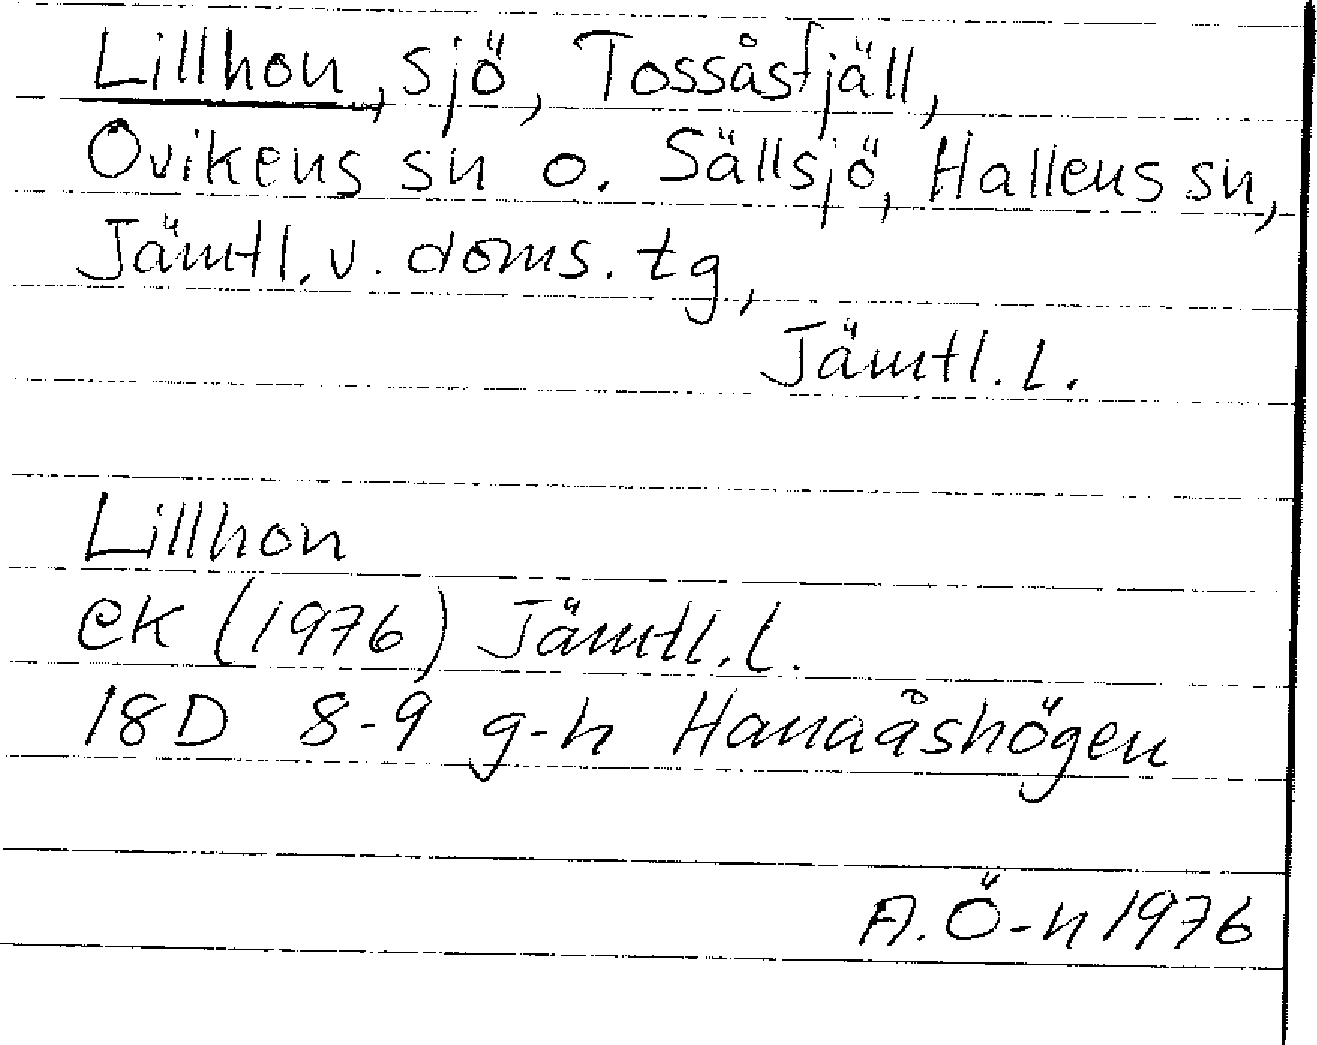 Lillhon, sjö, Tossåsfjäll,
Ovikens sn o. Sällsjö, Hallens sn,
Jämtl. v. doms. tg,
Jämtl. l.
Lillhon
ek (1976) Jämtl. l.
18D 8-9 g-h Hanaåshögen
A. Ö-n 1976